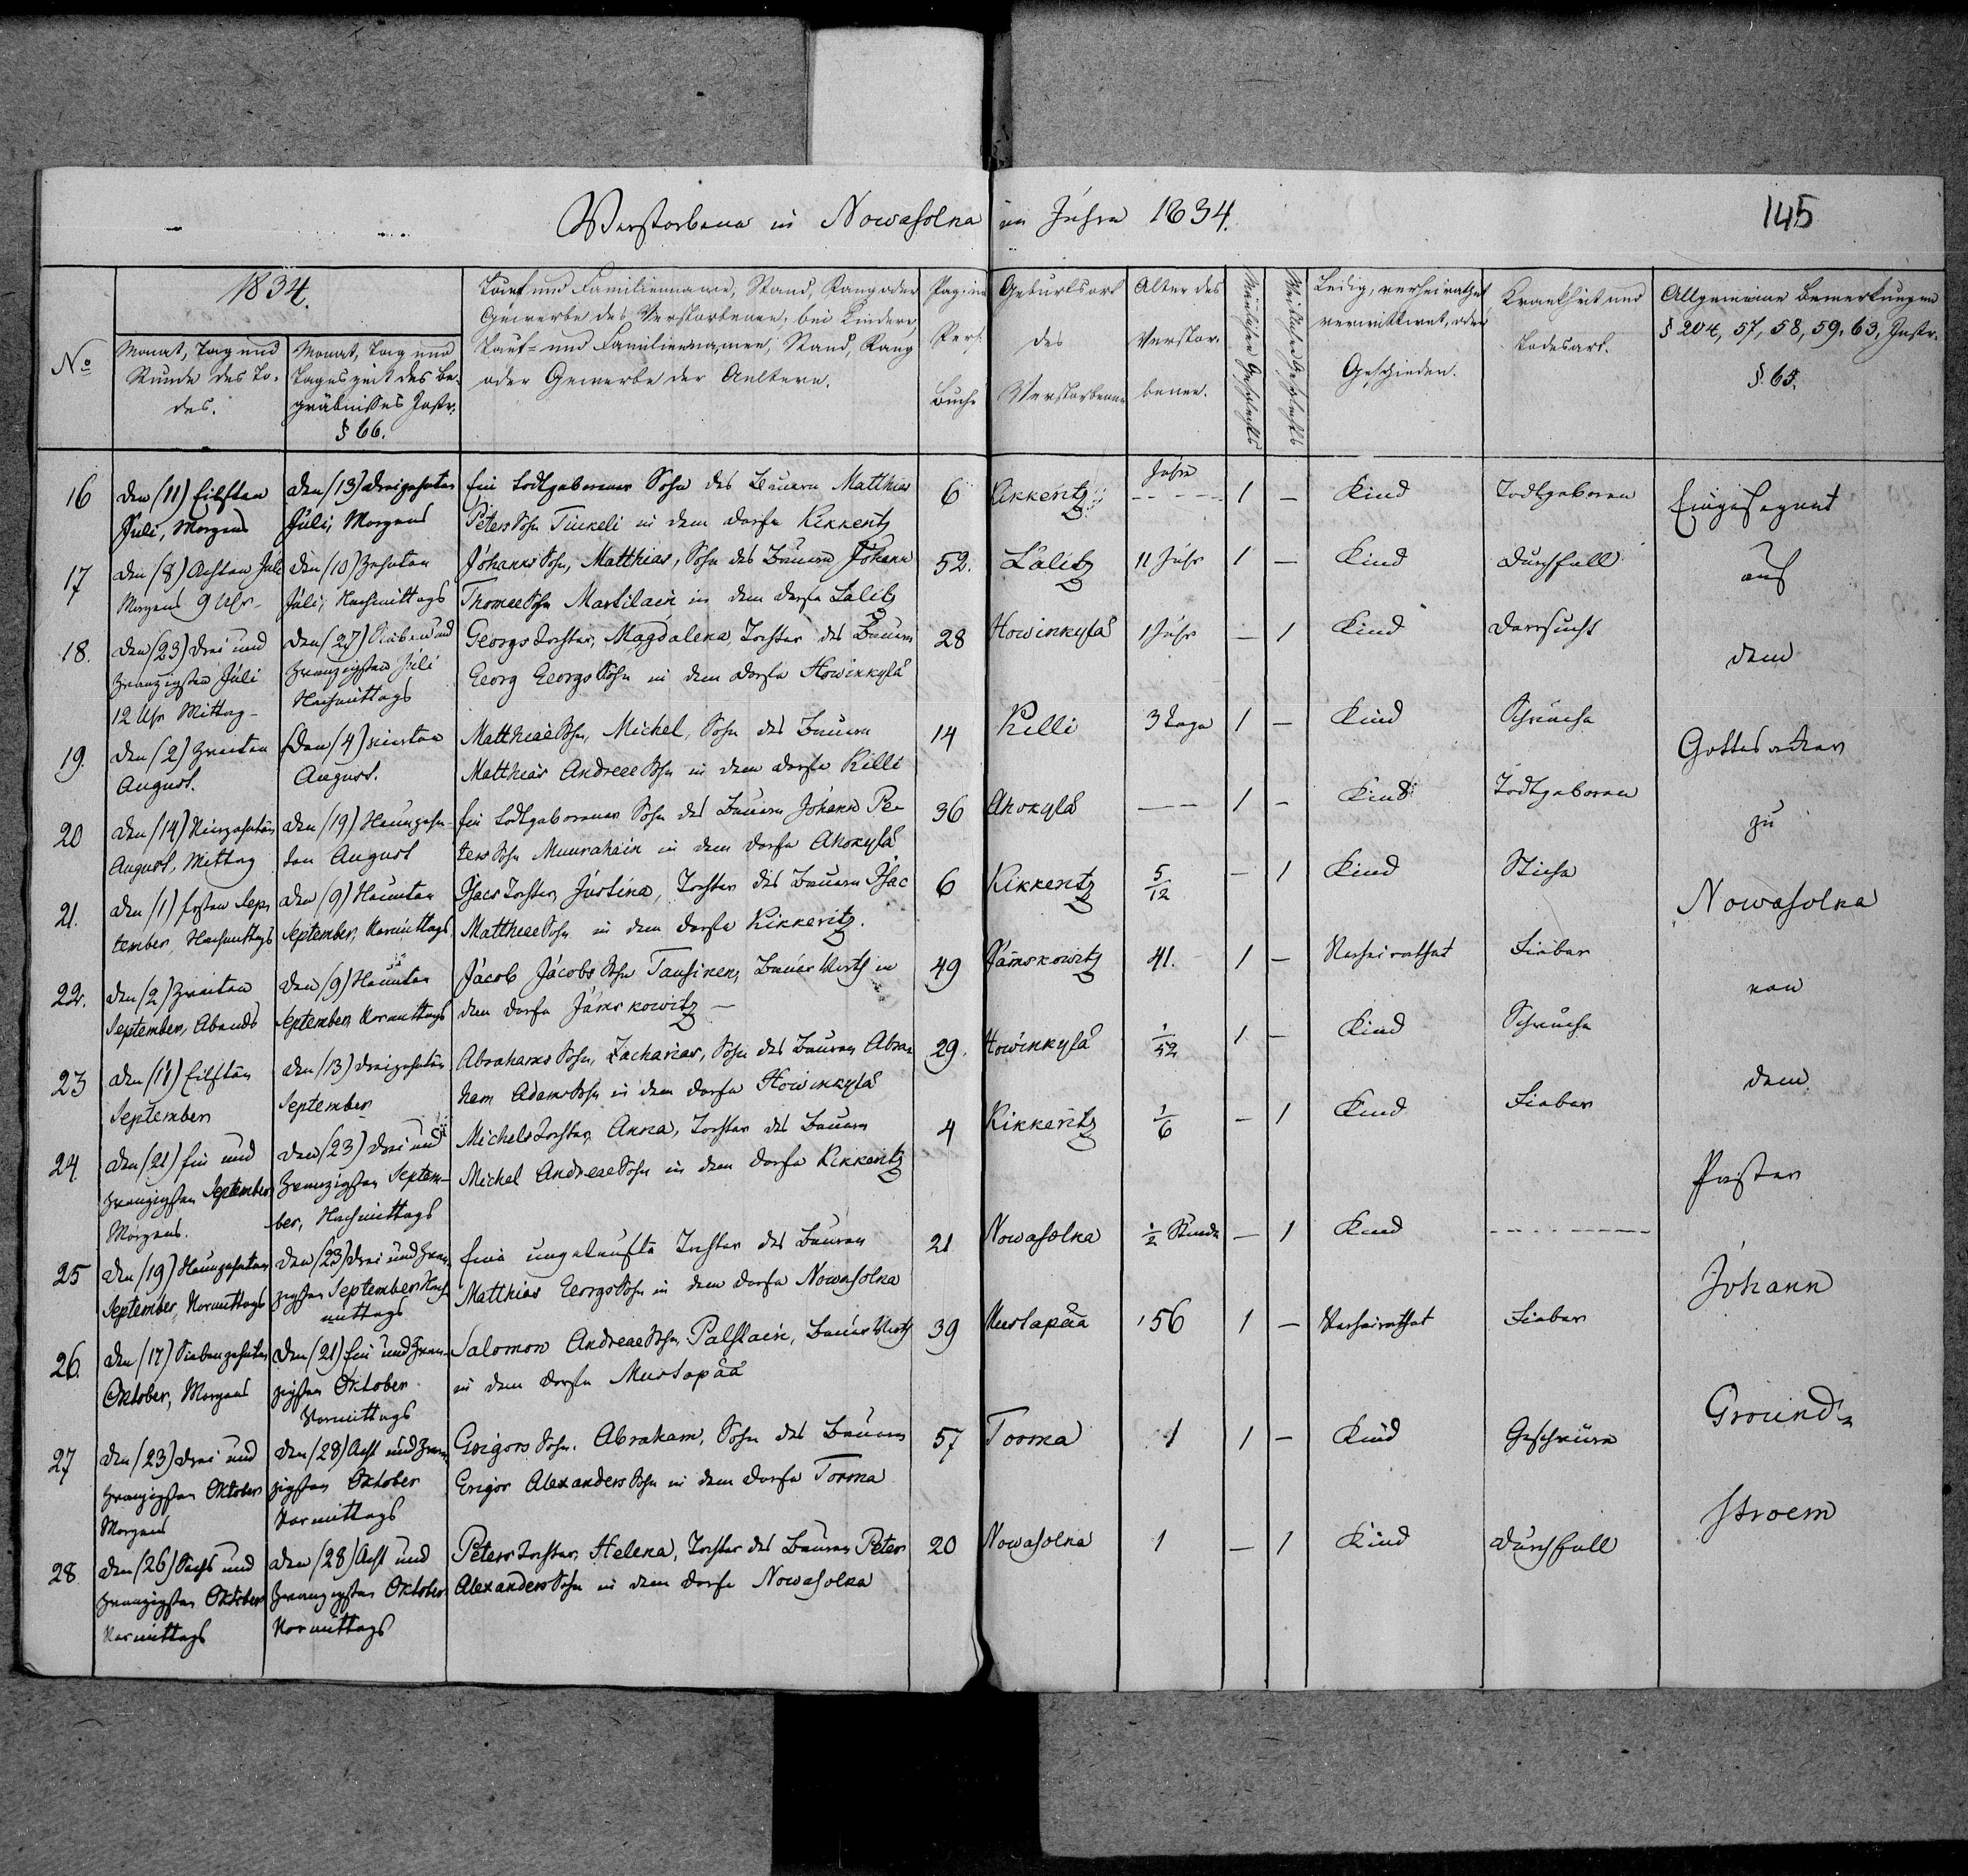 Verstorbene in Nowasolna im Jahre 1834.
145
1834.
No
Monat, Tag und
Stunde des To-
des.
Monat, Tag und
Tageszeit des Be-
gräbnisses Instr.
§ 66.
Tauf und Familienname, Stand, Rang oder
Gewerbe des Verstorbenen, bei Kindern
Tauf- und Familiennamen, Stand, Rang
oder Gewerbe der Aeltern.
Pagina
Pers.
Buchs
Geburtsort
des
Verstorbenen
Alter des
Verstor-
benen.
Männlichen Geschlechts
Weiblichen Geschlechts
Ledig, verheirathet
verwittwet, oder
Geschieden.
Krankheit und
Todesart.
Allgemeine Bemerkungen
§ 204, 57, 58, 59, 63, Instr.
§. 65.
16 den (11) Eilften den (13) dreizehnten Ein todtgeborener Sohn des Bauern Matthias 6 Kikkeritz Jahre 1 – Kind Todtgeboren
Juli, Morgens Juli, Morgens Peters Sohn Tinkeli in dem Dorfe Kikkeritz
17 den (8) Achten Juli den (10) Zehnten Johanns Sohn, Matthias, Sohn des Bauern Johann 52. Lalitz 11 Jahr 1 – Kind Durchfall
Morgens 9 Uhr – Juli, Nachmittags Thomae Sohn Martilain in dem Dorfe Lalitz
18. den (23) drei und den (27) Sieben und Georgs Tochter, Magdalena, Tochter des Bauern 28 Howinkylä 1 Jahr – 1 Kind Darrsucht
zwanzigsten Juli zwanzigsten Juli Georg Georgs Sohn in dem Dorfe Howinkylä
12 Uhr Mittag – Nachmittags
19. den (2) Zweiten Den (4) vierten Matthiae Sohn, Michel, Sohn des Bauern 14 Killi 3 Tage 1 – Kind Schwäche
August. August. Matthias Andreae Sohn in dem Dorfe Killi
20 den (14) Vierzehnten den (19) Neunzehn- Ein todtgeborener Sohn des Bauern Johann Pe- 36 Ahokylä – – 1 – Kind Todtgeboren
August, Mittag ten August ters Sohn Muurahain in dem Dorfe Ahokylä
21. den (1) Ersten Sep- den (9) Neunten Isacs Tochter, Justina, Tochter des Bauern Isac 6 Kikkeritz 5/12 – 1 Kind Stiche
tember, Nachmittags September, Vormittags Matthiae Sohn in dem Dorfe Kikkeritz.
22. den (2) Zweiten den (9) Neunten Jacob Jacobs Sohn Tausinen, Bauer Wirth in 49 Jämskowitz 41. 1 – Verheirathet Fieber
September, Abends September, Vormittags dem Dorfe Jämskowitz –
23 den (11) Eilften den (13) dreizehnten Abrahams Sohn, Zacharias, Sohn des Bauern Abra- 29. Howinkylä 1/52 1 – Kind Schwäche
September September ham Adams Sohn in dem Dorfe Howinkylä
24. den (21) Ein und den (23) drei und Michels Tochter, Anna, Tochter des Bauern 4 Kikkeritz 1/6 – 1 Kind Fieber
zwanzigsten September zwanzigsten Septem- Michel Andreae Sohn in dem Dorfe Kikkeritz
Morgens. ber, Nachmittags
25 den (19) Neunzehnten den (23) drei und zwan- Eine ungetaufte Tochter des Bauern 21 Nowasolna 1/2 Stunde – 1 Kind – – –
September, Vormittags zigsten September Nach- Matthias Georgs Sohn in dem Dorfe Nowasolna
mittags
26. den (17) Siebenzehnten den (21) Ein und zwan- Salomon Andreae Sohn Palflain, Bauer Wirth 39 Mustapää 56 1 – Verheirathet Fieber
Oktober, Morgens zigsten Oktober in dem Dorfe Mustapää
Vormittags
27 den (23) drei und den (28) Acht und zwan- Grigors Sohn, Abraham, Sohn des Bauern 57 Torma 1 1 – Kind Geschwüre
zwanzigsten Oktober zigsten Oktober Grigor Alexanders Sohn in dem Dorfe Torma
Morgens Vormittags
28. den (26) Sechs und den (28) Acht und Peters Tochter, Helena, Tochter des Bauern Peter 20 Nowasolna 1 – 1 Kind Durchfall
zwanzigsten Oktober zwanzigsten Oktober Alexanders Sohn in dem Dorfe Nowasolna
Vormittags Vormittags
Eingesegnet
auf
dem
Gottesacker
zu
Nowasolna
von
dem
Pastor
Johann
Ground-
stroem